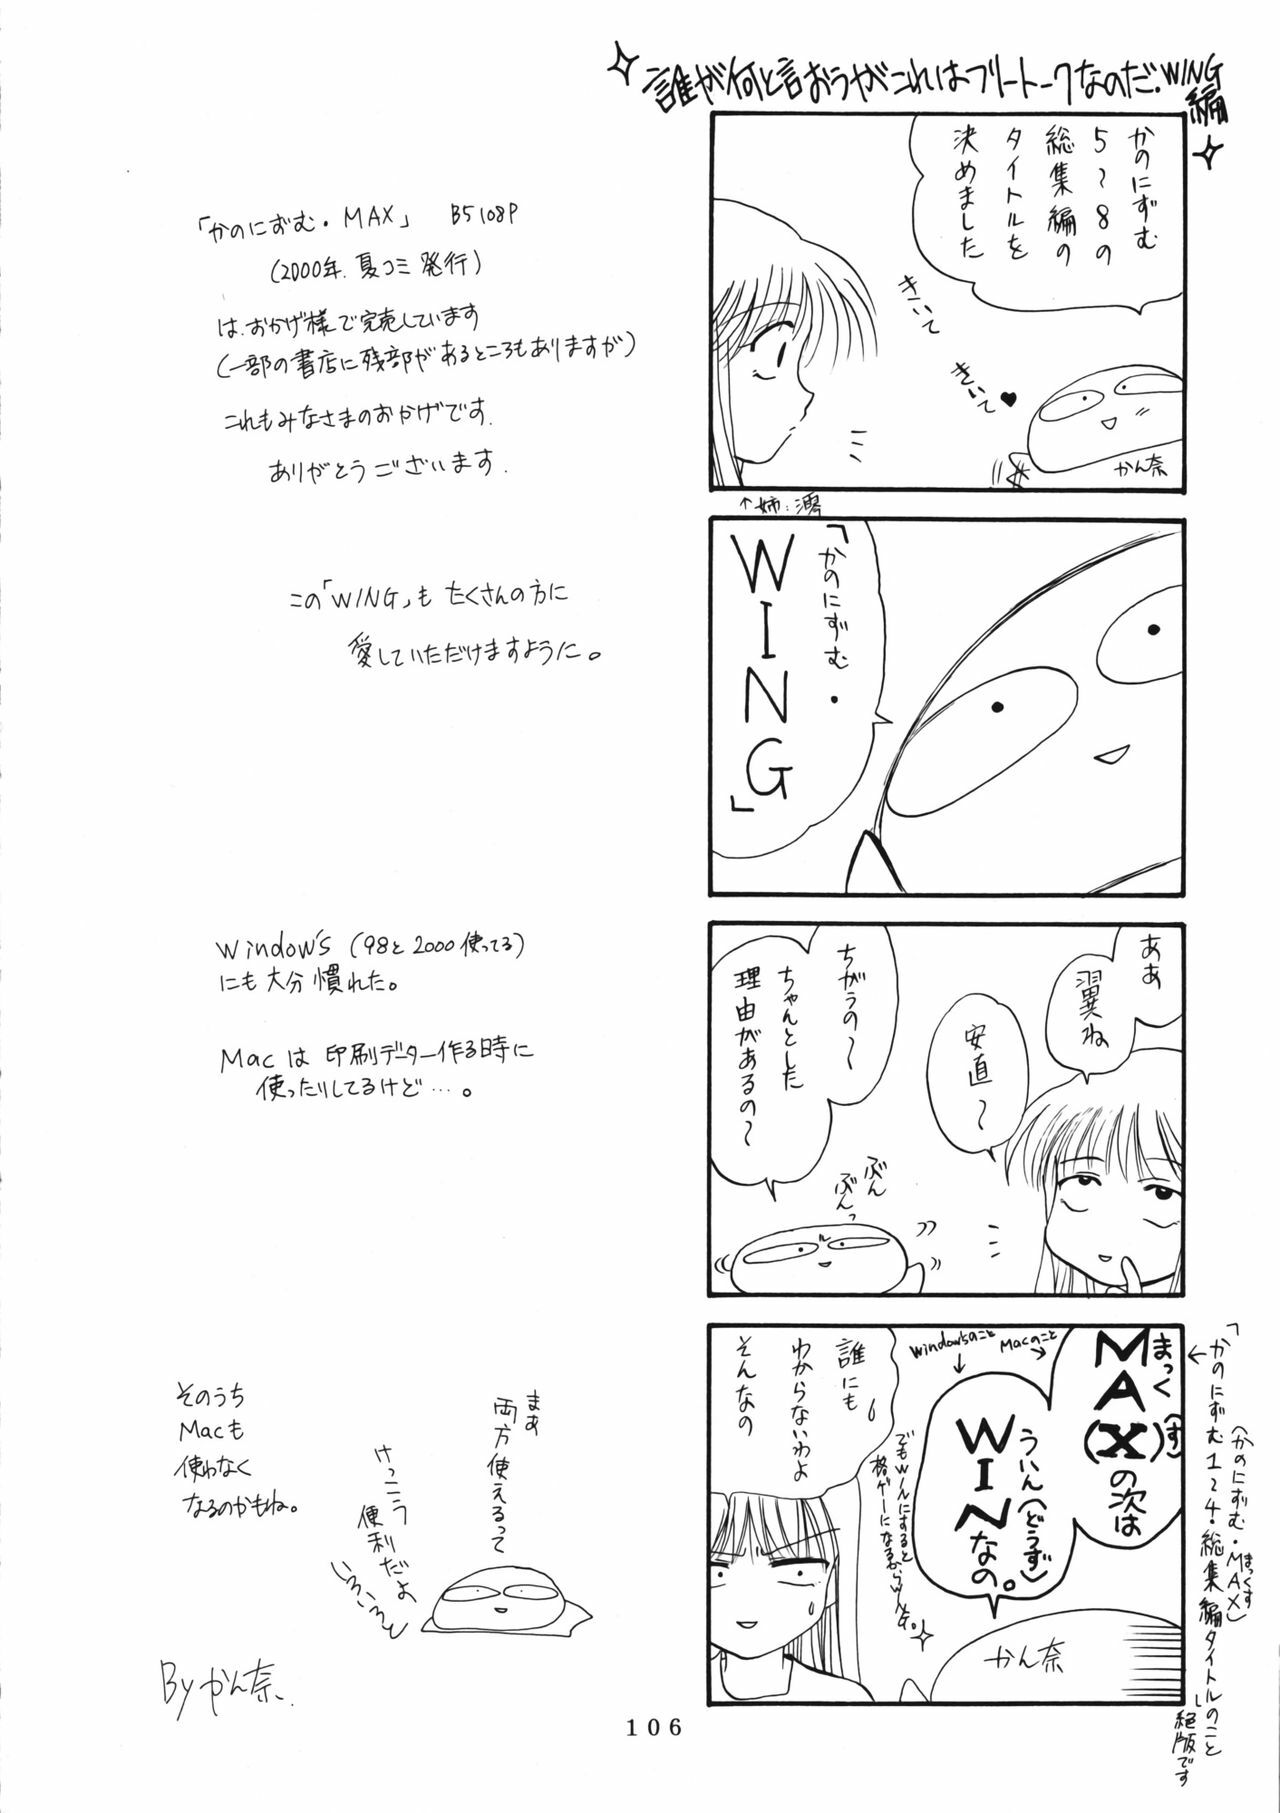 誰が何と言おうがこれはフリートークなのだ。WING編
かのにずむ
5〜8の
総集編の
タイトルを
決めました
きいて
きいて♥
かん奈
↑姉:澪
「かのにずむ・
WING」
ああ
翼ね
安直〜
ちがうの〜
ちゃんとした
理由があるの〜
ぶん
ぶんっ
まっく(す)
MA(X)の次は
Macのこと
Window'sのこと
ういん(どうず)
WINなの。
誰にも
わからないわよ
そんなの
でもWinにすると
格ゲーになるからWING。
かん奈
←「かのにずむ1〜4・総集編タイトルのこと
(かのにずむ・MAX)
まっくす
絶版です
「かのにずむ・MAX」 B5 108P
(2000年.夏コミ発行)
は、おかげ様で完売しています
(一部の書店に残部があるところもありますが)
これもみなさまのおかげです.
ありがとうございます.
この「WING」も たくさんの方に
愛していただけますように。
Window's (98と2000使ってる)
にも大分慣れた。
Macは 印刷データー作る時に
使ったりしてるけど…。
そのうち
Macも
使わなく
なるのかもね。
まあ
両方使えるって
けっこう
便利だよ
いろいろと
By かん奈、
106